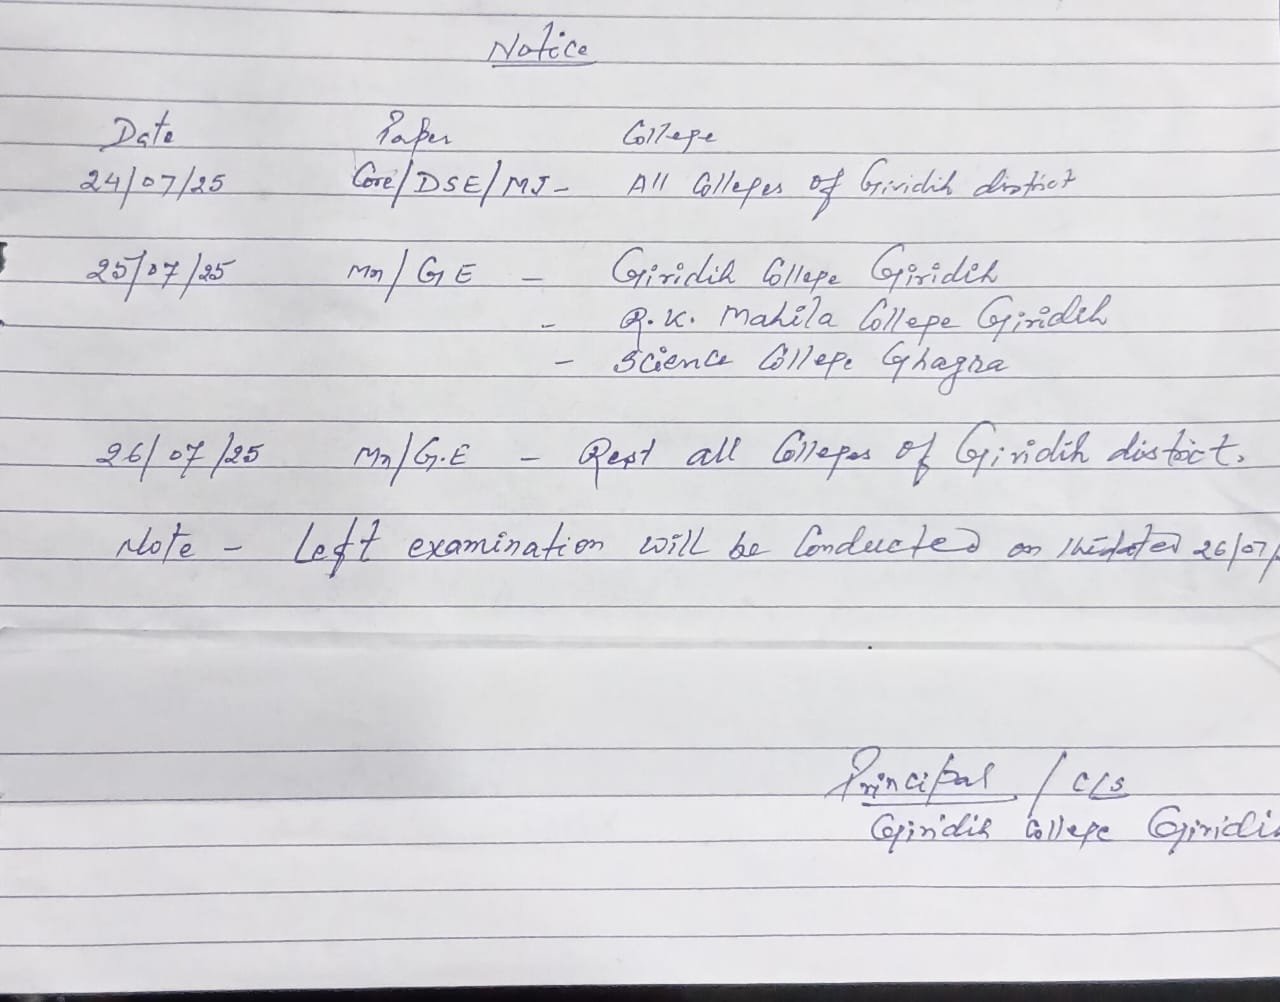 Notice
Date Paper College
24/07/25 Core/DSE/MJ - All Colleges of Giridih district
25/07/25 Mn/G.E - Giridih College Giridih
- R.K. Mahila College Giridih
- Science College Ghagra
26/07/25 Mn/G.E - Rest all Colleges of Giridih district.
Note - Left examination will be Conducted on dated 26/07/
Principal / C/S
Giridih College Giridih